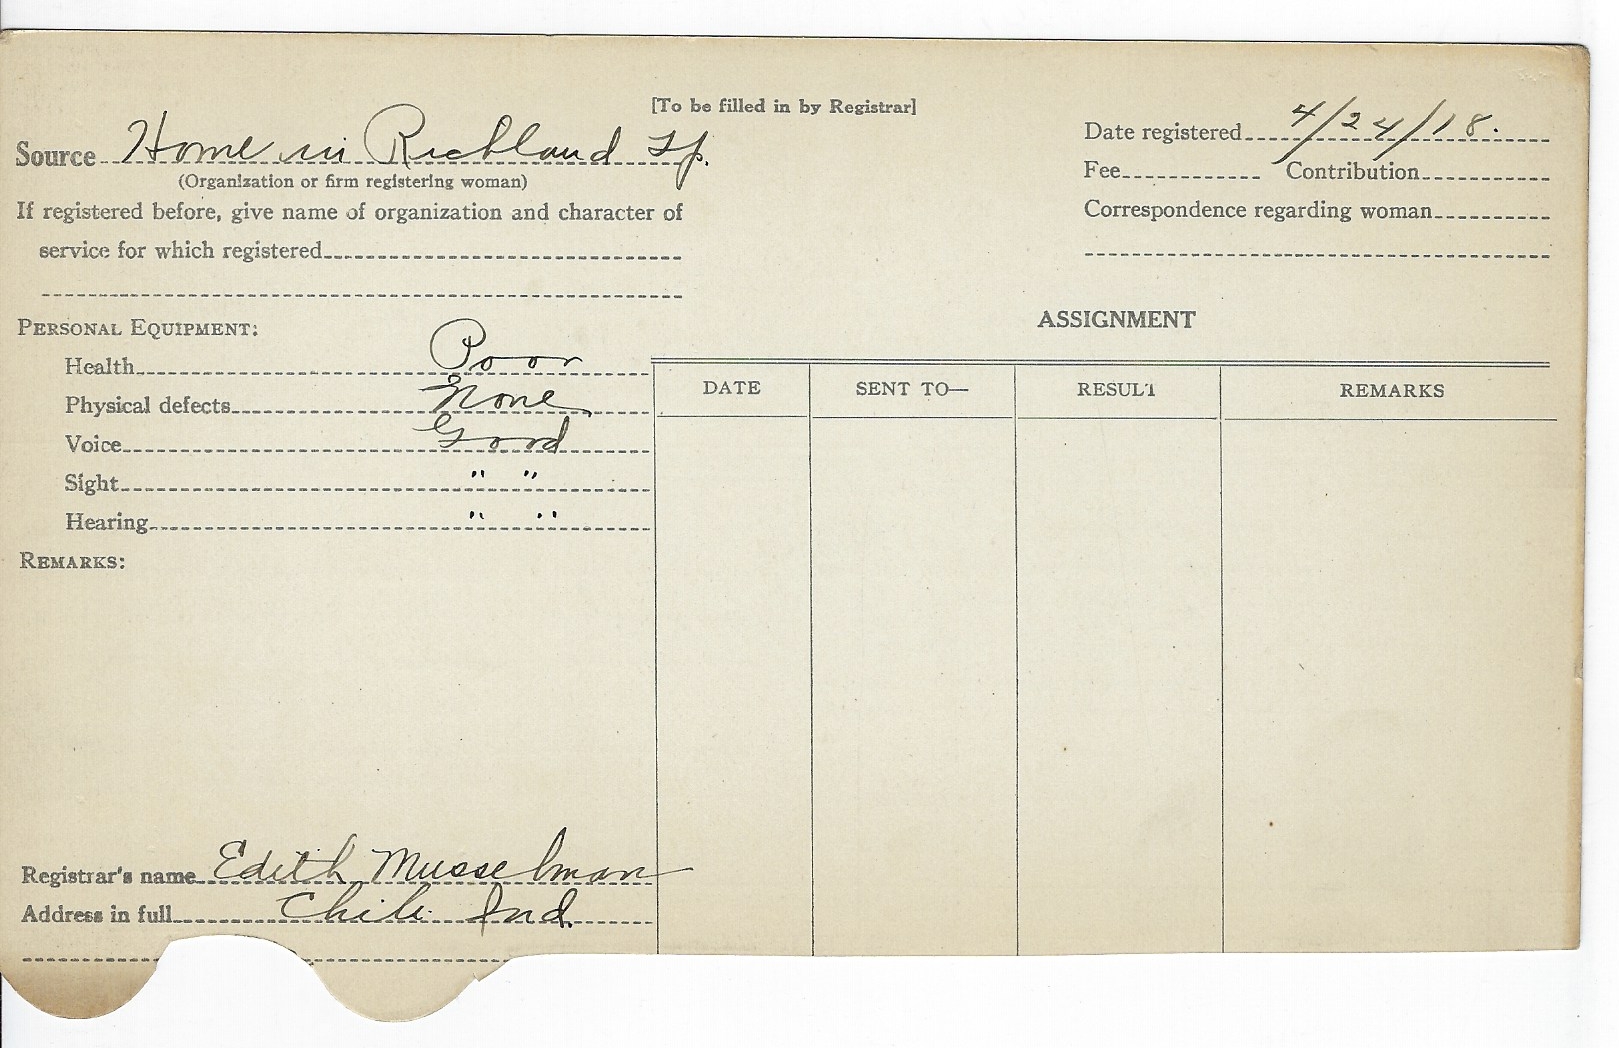 [To be filled in by Registrar]
Source Home in Richland Tp.
(Organization or firm registering woman)
If registered before, give name of organization and character of
service for which registered
Date registered 4/24/18.
Fee Contribution
Correspondence regarding woman
PERSONAL EQUIPMENT:
Health Poor
Physical defects None
Voice Good
Sight " "
Hearing " "
REMARKS:
Registrar's name Edith Musselman
Address in full Chili Ind.
ASSIGNMENT
DATE SENT TO— RESULT REMARKS